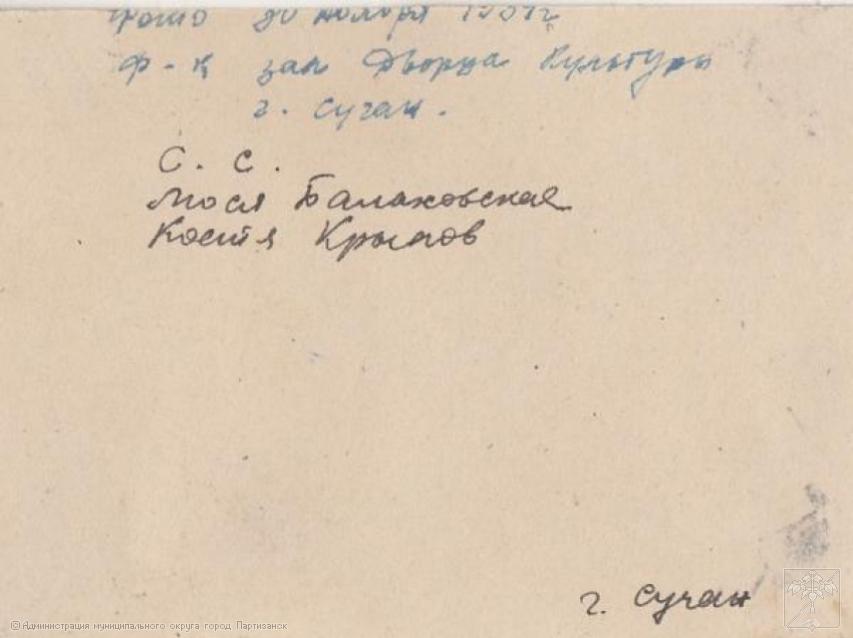 фото 30 ноября
ф-к зал Дворца Культуры
г. Сучан.
С. С.
Мося Балаховская
Костя Крылов
г. Сучан
© Администрация муниципального округа город Партизанск